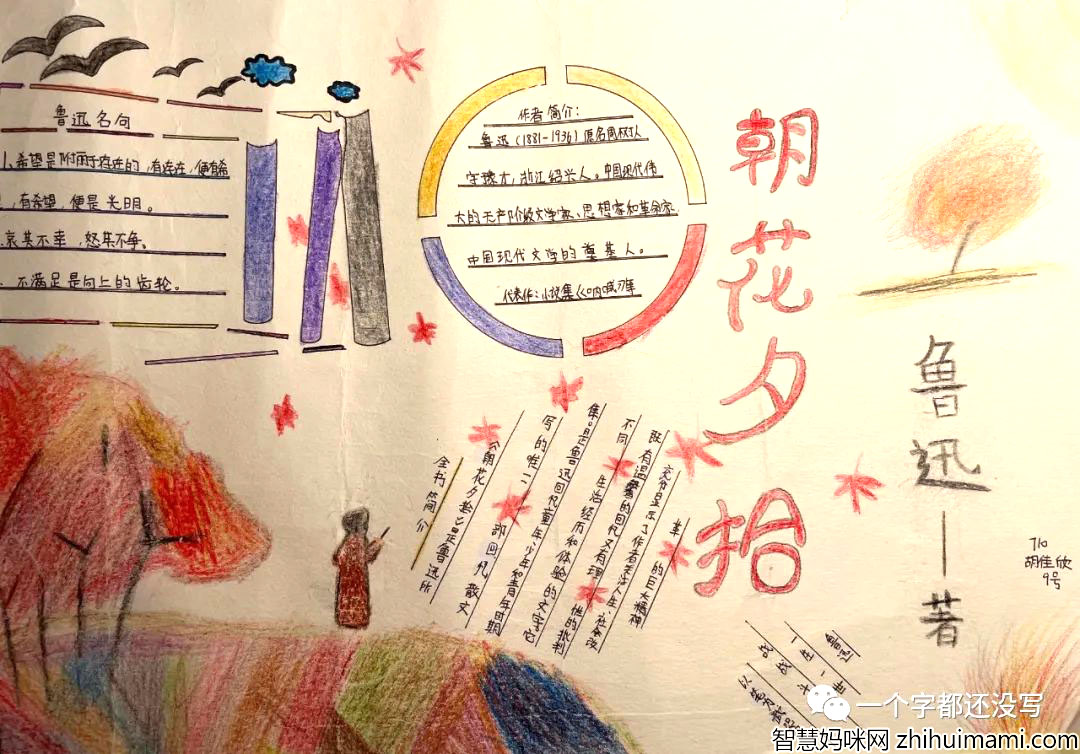 鲁迅名句
1、希望是附丽于存在的,有存在,便有希
,有希望,便是光明。
哀其不幸,怒其不争。
不满足是向上的齿轮。
作者简介:
鲁迅(1881-1936)原名周树人
字豫才,浙江绍兴人。中国现代伟
大的无产阶级文学家、思想家和革命家
中国现代文学的奠基人。
代表作:小说集《呐喊》
朝花夕拾
鲁迅—著
710
胡佳欣
9号
全书简介
《朝花夕拾》是鲁迅所
写的唯一一部回忆散文
集。是鲁迅回忆童年、少年和青年时期
不同生活经历和体验的文字。它
既有温馨的回忆又有理
他的批判
充分显示了作者关注人生、社会改
革的巨大精神
鲁迅一
生
战斗
以笔为武器
一个字都还没写
智慧妈咪网 zhihuimami.com